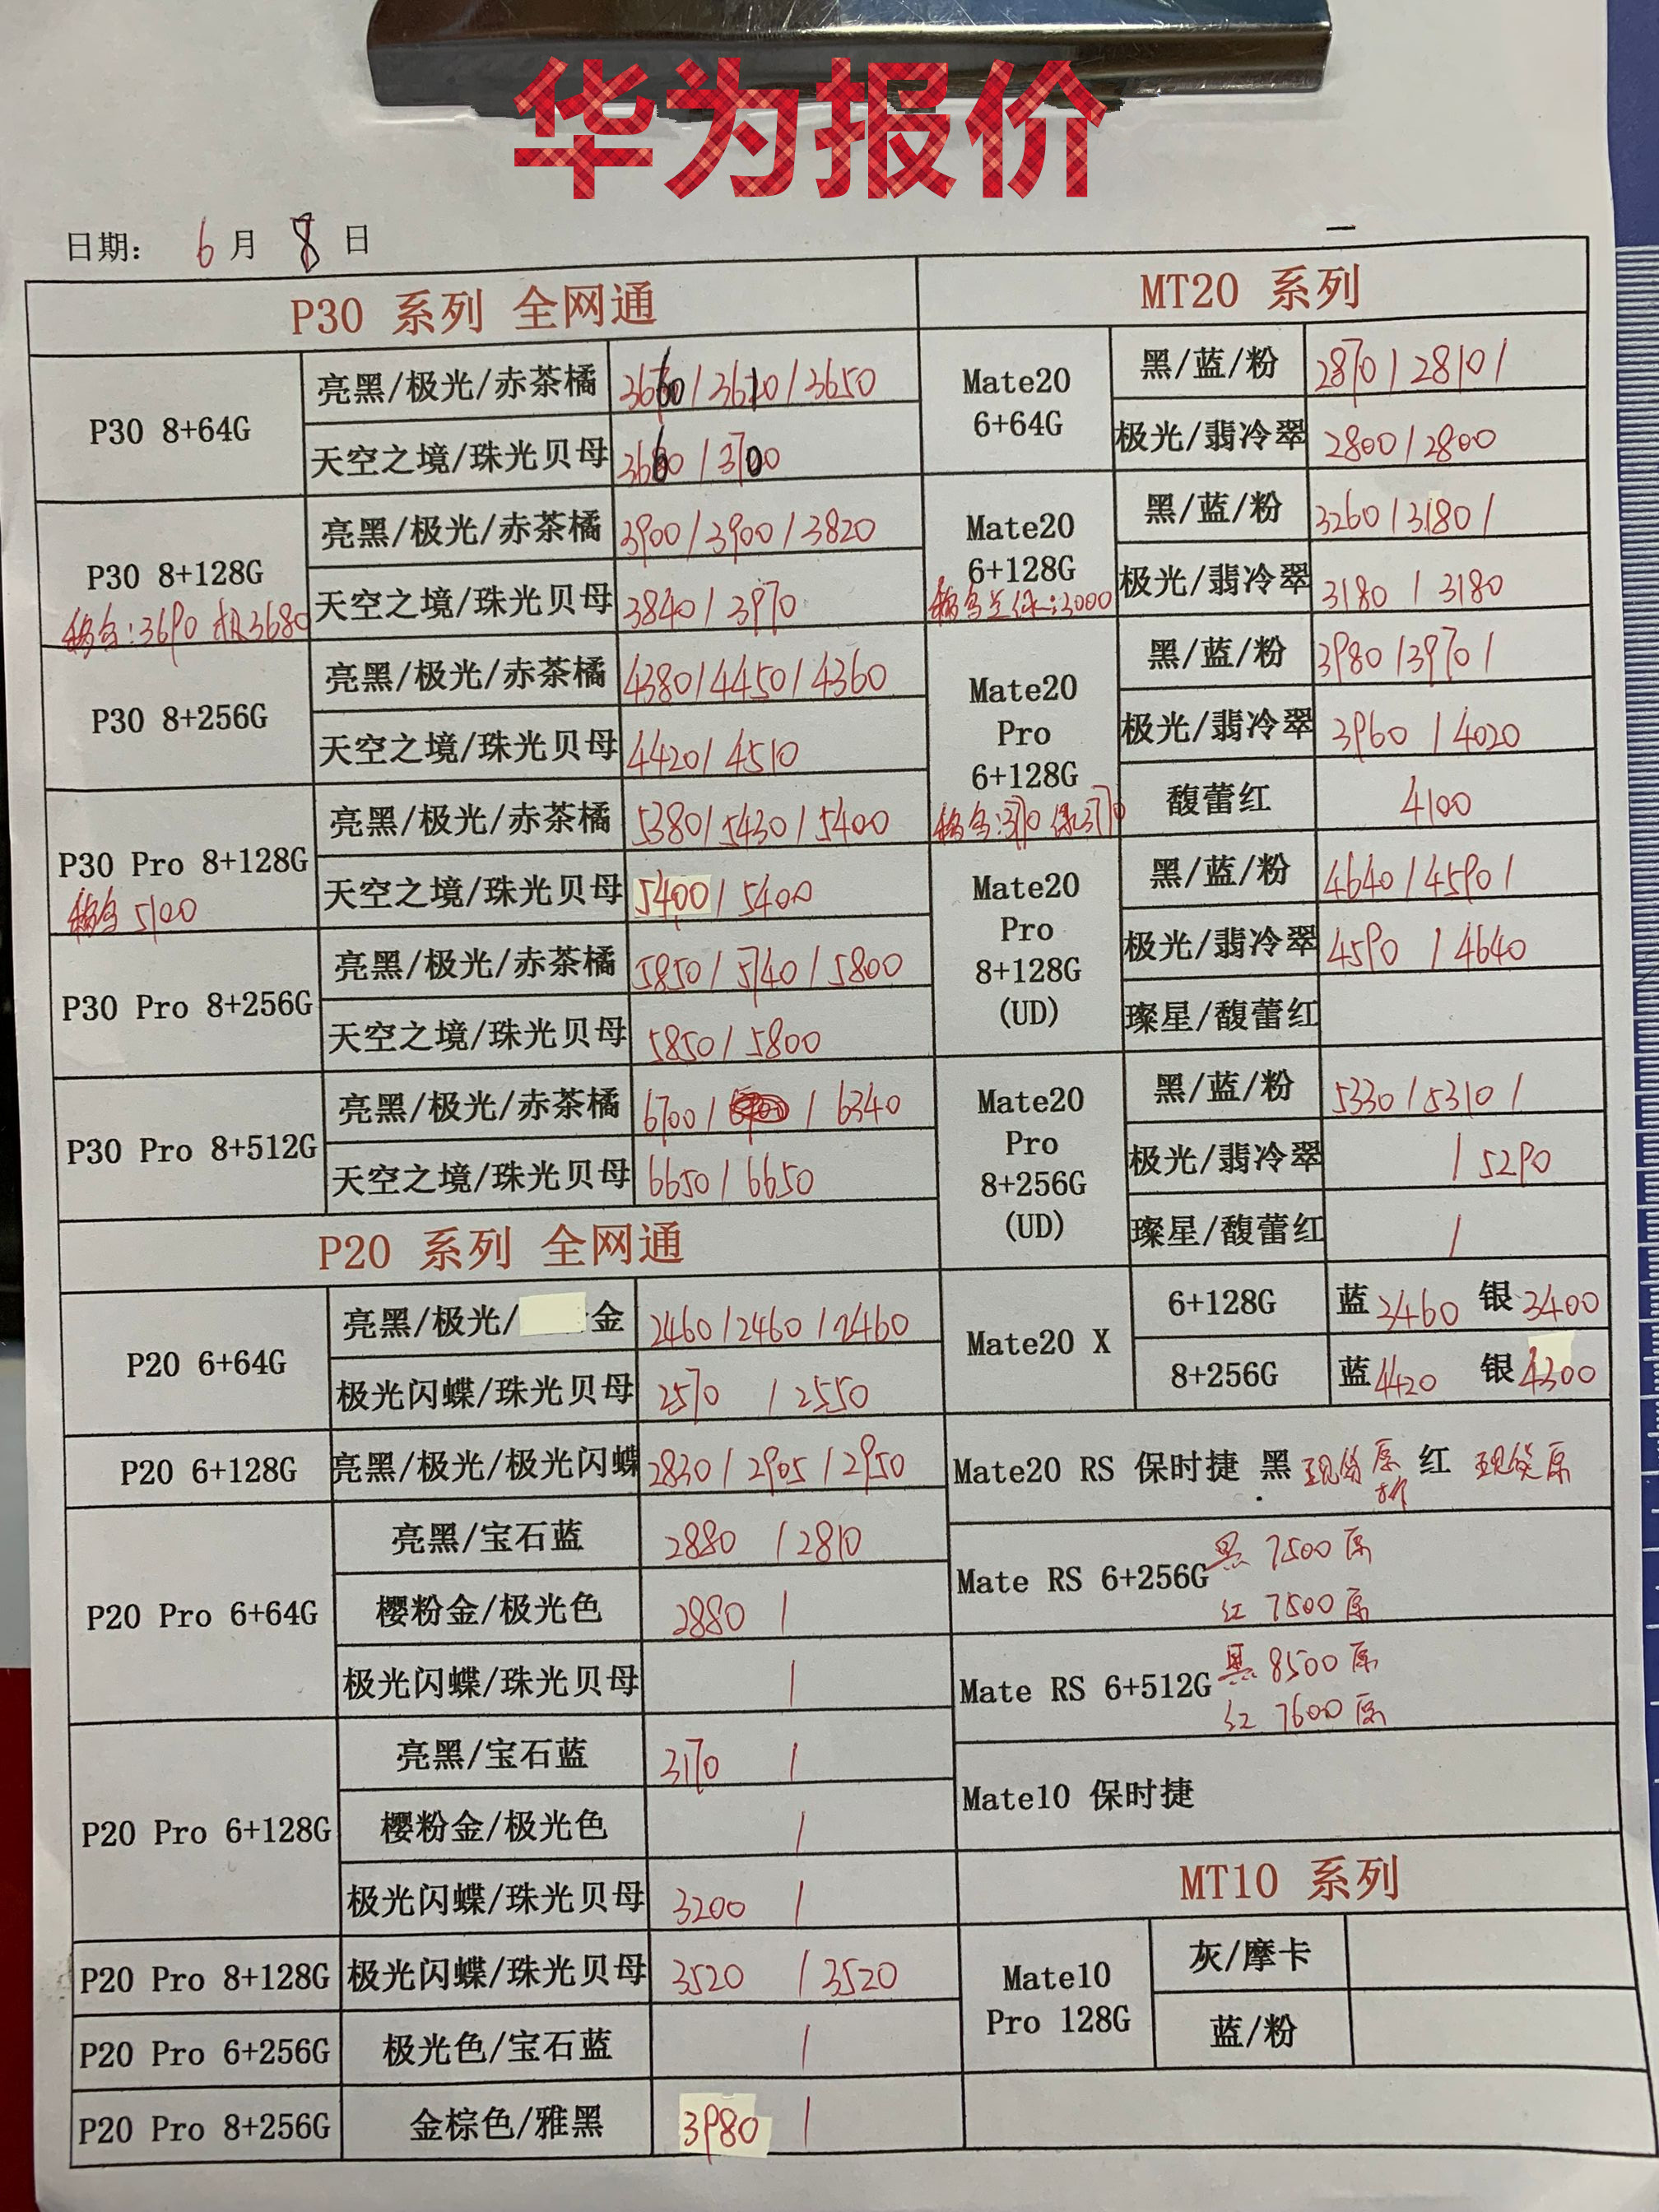 华为报价
日期： 6 月 8 日
P30 系列 全网通
P30 8+64G
亮黑/极光/赤茶橘 3660/3610/3650
天空之境/珠光贝母 3660/3700
P30 8+128G
移合:3690 3680
亮黑/极光/赤茶橘 3900/3900/3820
天空之境/珠光贝母 3840/3970
P30 8+256G
亮黑/极光/赤茶橘 4380/4450/4360
天空之境/珠光贝母 4420/4510
P30 Pro 8+128G
移合 5100
亮黑/极光/赤茶橘 5380/5430/5400
天空之境/珠光贝母 5400/5400
P30 Pro 8+256G
亮黑/极光/赤茶橘 5850/5740/5800
天空之境/珠光贝母 5850/5800
P30 Pro 8+512G
亮黑/极光/赤茶橘 6700/ /6340
天空之境/珠光贝母 6650/6650
P20 系列 全网通
P20 6+64G
亮黑/极光/ 金 2460/2460/2460
极光闪蝶/珠光贝母 2570 /2550
P20 6+128G
亮黑/极光/极光闪蝶 2830/2905/2950
P20 Pro 6+64G
亮黑/宝石蓝 2880 /2810
樱粉金/极光色 2880 /
极光闪蝶/珠光贝母 /
P20 Pro 6+128G
亮黑/宝石蓝 3170 /
樱粉金/极光色 /
极光闪蝶/珠光贝母 3200 /
P20 Pro 8+128G
极光闪蝶/珠光贝母 3520 /3520
P20 Pro 6+256G
极光色/宝石蓝 /
P20 Pro 8+256G
金棕色/雅黑 3980 /
MT20 系列
Mate20
6+64G
黑/蓝/粉 2870/2810/
极光/翡冷翠 2800/2800
Mate20
6+128G
移合 :3000
黑/蓝/粉 3260/3180/
极光/翡冷翠 3180 /3180
Mate20
Pro
6+128G
移合:
黑/蓝/粉 3980/3970/
极光/翡冷翠 3960 /4020
馥蕾红 4100
Mate20
Pro
8+128G
(UD)
黑/蓝/粉 4640/4590/
极光/翡冷翠 4590 /4640
璨星/馥蕾红
Mate20
Pro
8+256G
(UD)
黑/蓝/粉 5330/5310/
极光/翡冷翠 /5290
璨星/馥蕾红 /
Mate20 X
6+128G 蓝 3460 银 3400
8+256G 蓝 4420 银 4300
Mate20 RS 保时捷 黑 现货原 红 现货原
拆
Mate RS 6+256G 黑 7500 原
红 7500 原
Mate RS 6+512G 黑 8500 原
红 7600 原
Mate10 保时捷
MT10 系列
Mate10
Pro 128G
灰/摩卡
蓝/粉